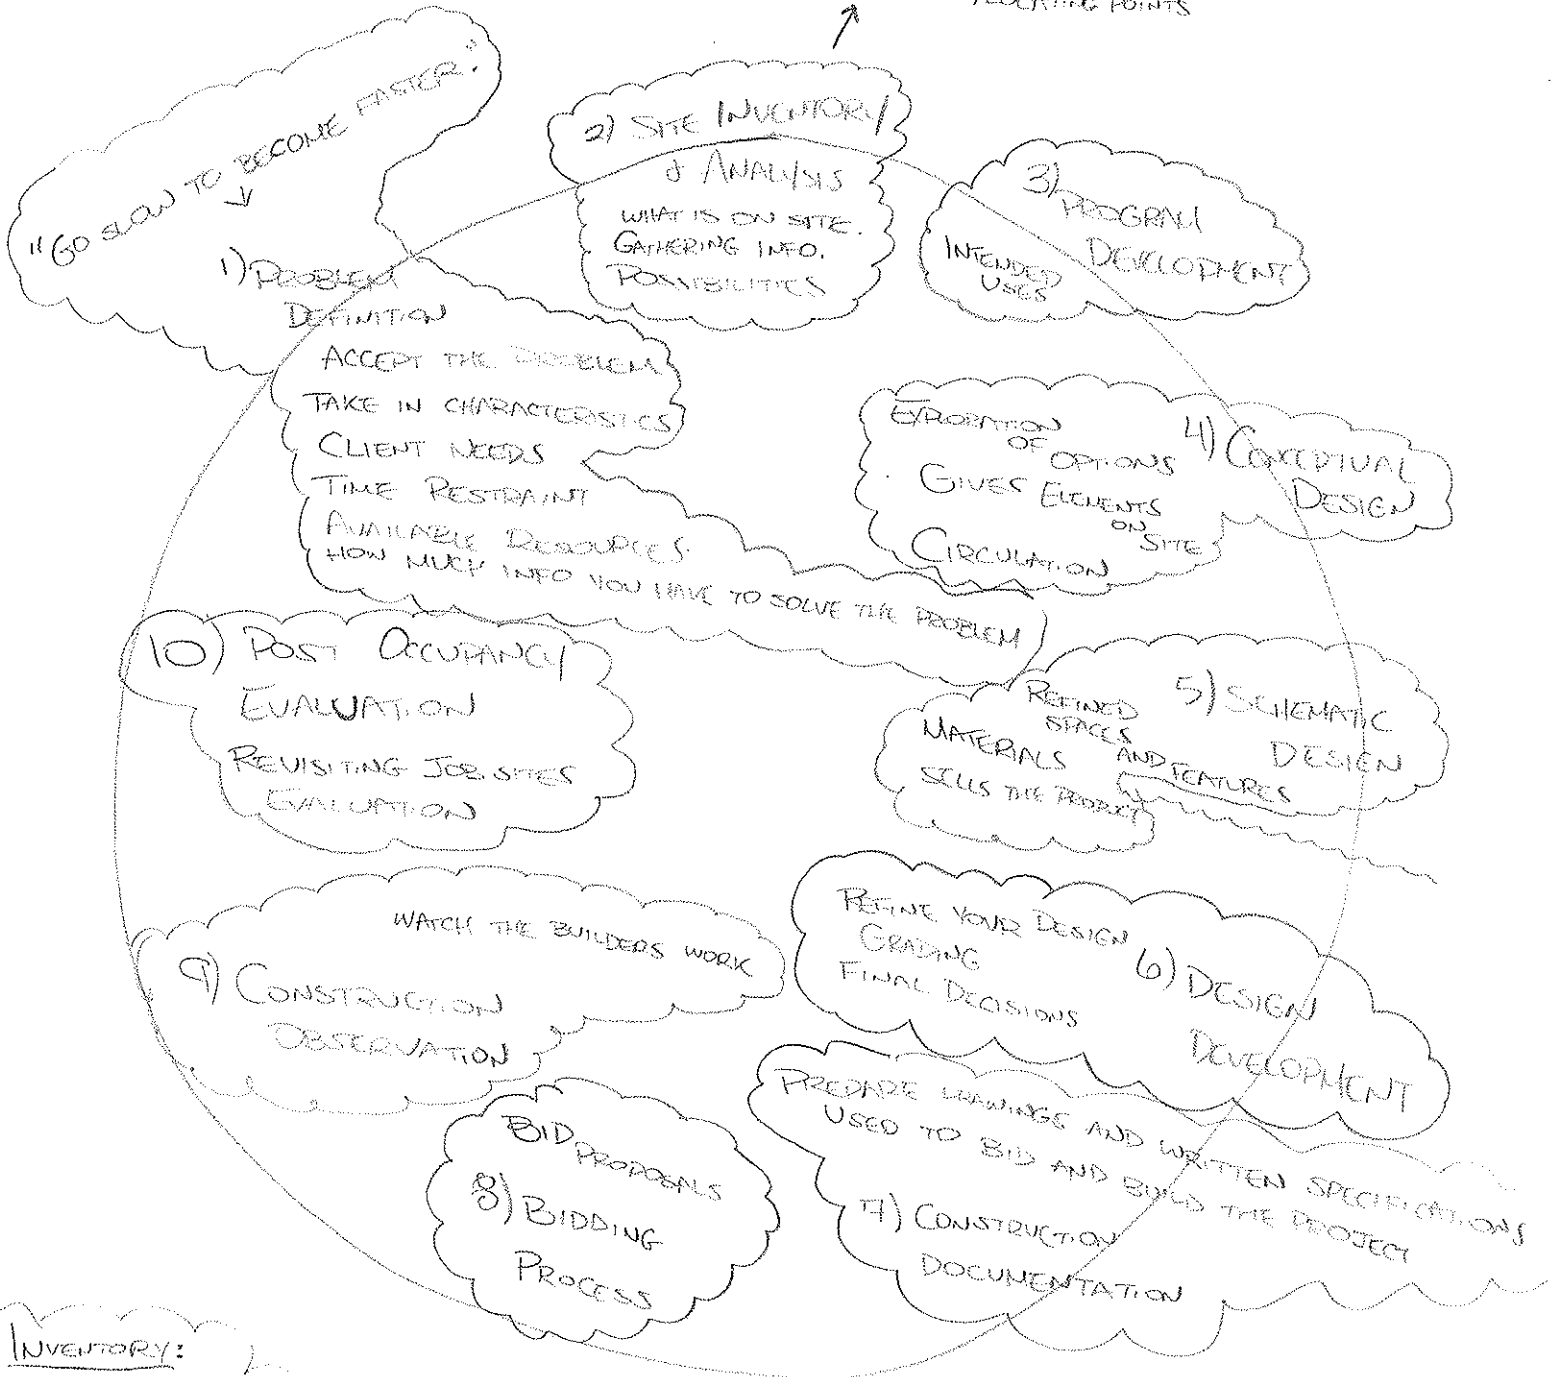 LOCATING POINTS
"GO SLOW TO BECOME FASTER."
1) PROBLEM
DEFINITION
ACCEPT THE PROBLEM
TAKE IN CHARACTERISTICS
CLIENT NEEDS
TIME RESTRAINT
AVAILABLE RESOURCES.
HOW MUCH INFO YOU HAVE TO SOLVE THE PROBLEM
2) SITE INVENTORY
& ANALYSIS
WHAT IS ON SITE.
GATHERING INFO.
POSSIBILITIES
3) PROGRAM
DEVELOPMENT
INTENDED
USES
4) CONCEPTUAL
DESIGN
EXPLORATION
OF
OPTIONS
GIVES ELEMENTS
ON
SITE
CIRCULATION
5) SCHEMATIC
DESIGN
REFINED
SPACES
MATERIALS AND FEATURES
SELLS THE PRODUCT
REFINE YOUR DESIGN
GRADING
FINAL DECISIONS
6) DESIGN
DEVELOPMENT
PREPARE DRAWINGS AND WRITTEN SPECIFICATIONS
USED TO BID AND BUILD THE PROJECT
7) CONSTRUCTION
DOCUMENTATION
BID PROPOSALS
8) BIDDING
PROCESS
WATCH THE BUILDERS WORK
9) CONSTRUCTION
OBSERVATION
10) POST OCCUPANCY
EVALUATION
REVISITING JOB SITES
EVALUATION
INVENTORY: